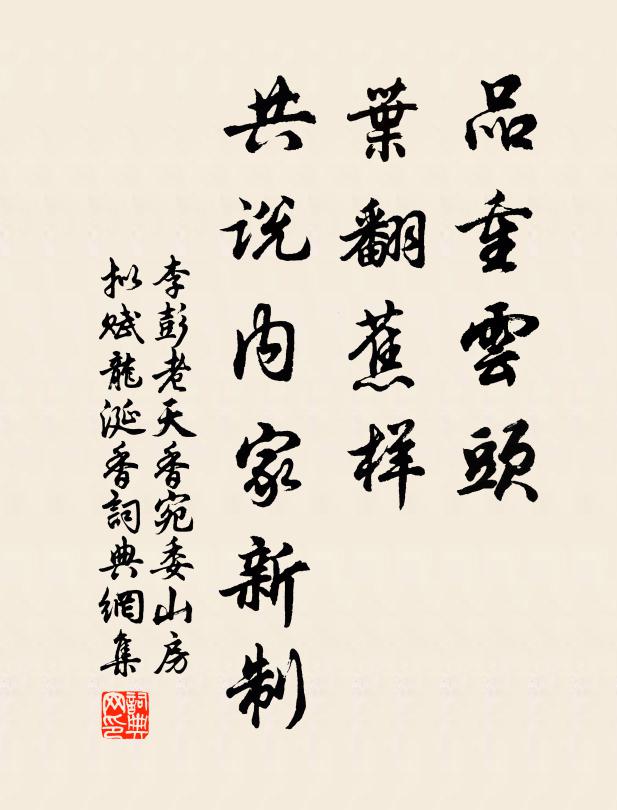 品重雲頭
葉翻蕉样
共说内家新制
李彭老天香宛委山房
拟赋龍涎香詞典網集
詞典
网印